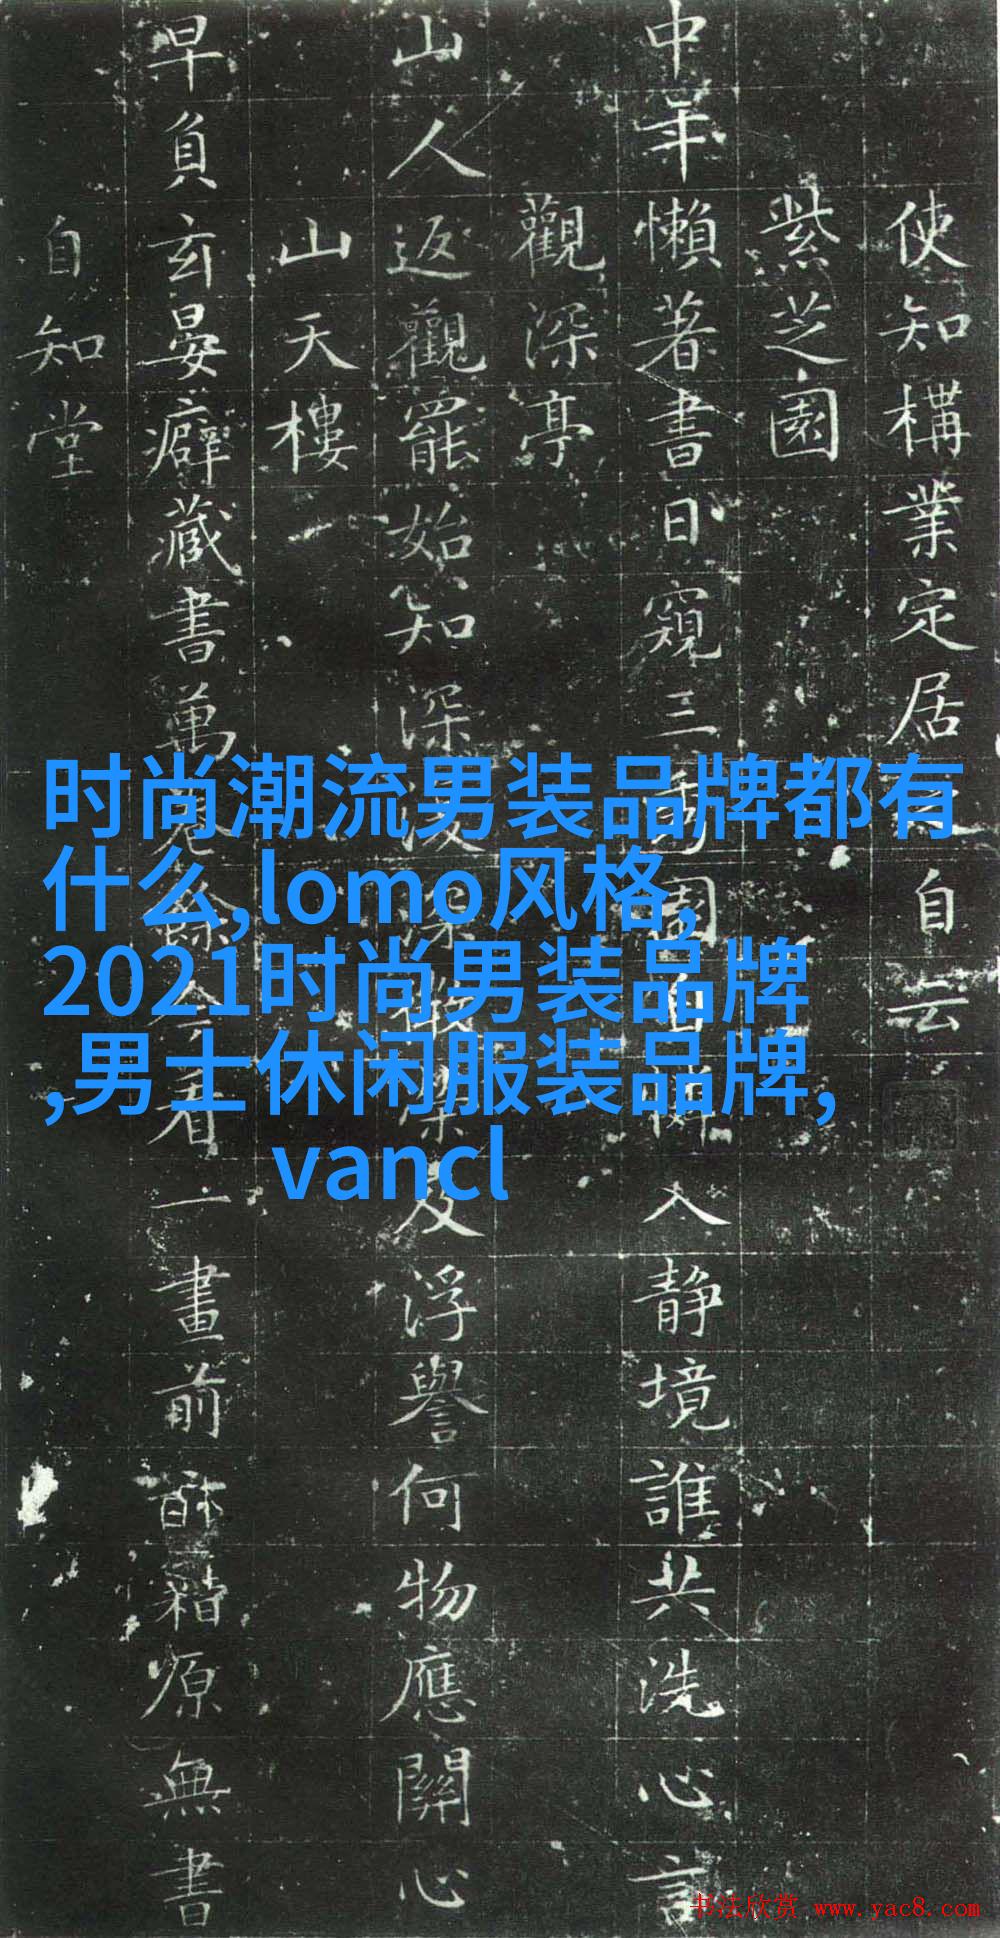 使知構業定居自云
紫芝園
中年懶著書日窺三園入靜境誰共洗心言
觀深亭
山人返觀罷始知深深及浮譽何物應關心
山天樓
早負玄晏癖藏書萬餘看一畫前籍原無書
自知堂
时尚潮流男装品牌都有
什么,lomo风格,
2021时尚男装品牌
,男士休闲服装品牌,
vancl
书法欣赏 www.yac8.com